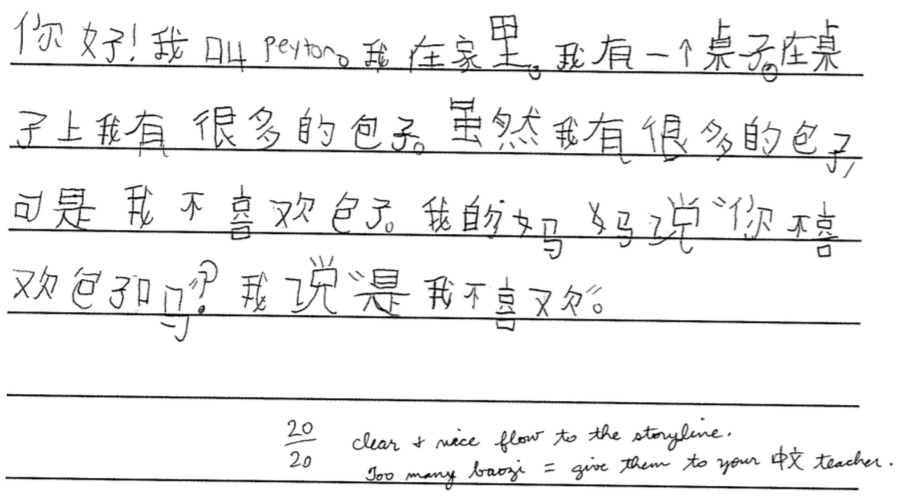 你好！我叫 Peyton。我在家里。我有一个桌子。在桌
子上我有很多的包子。虽然我有很多的包子，
可是我不喜欢包子。我的妈妈说“你不喜
欢包子吗？”我说“是我不喜欢”。
20/20 clear & nice flow to the storyline.
Too many baozi = give them to your 中文 teacher.